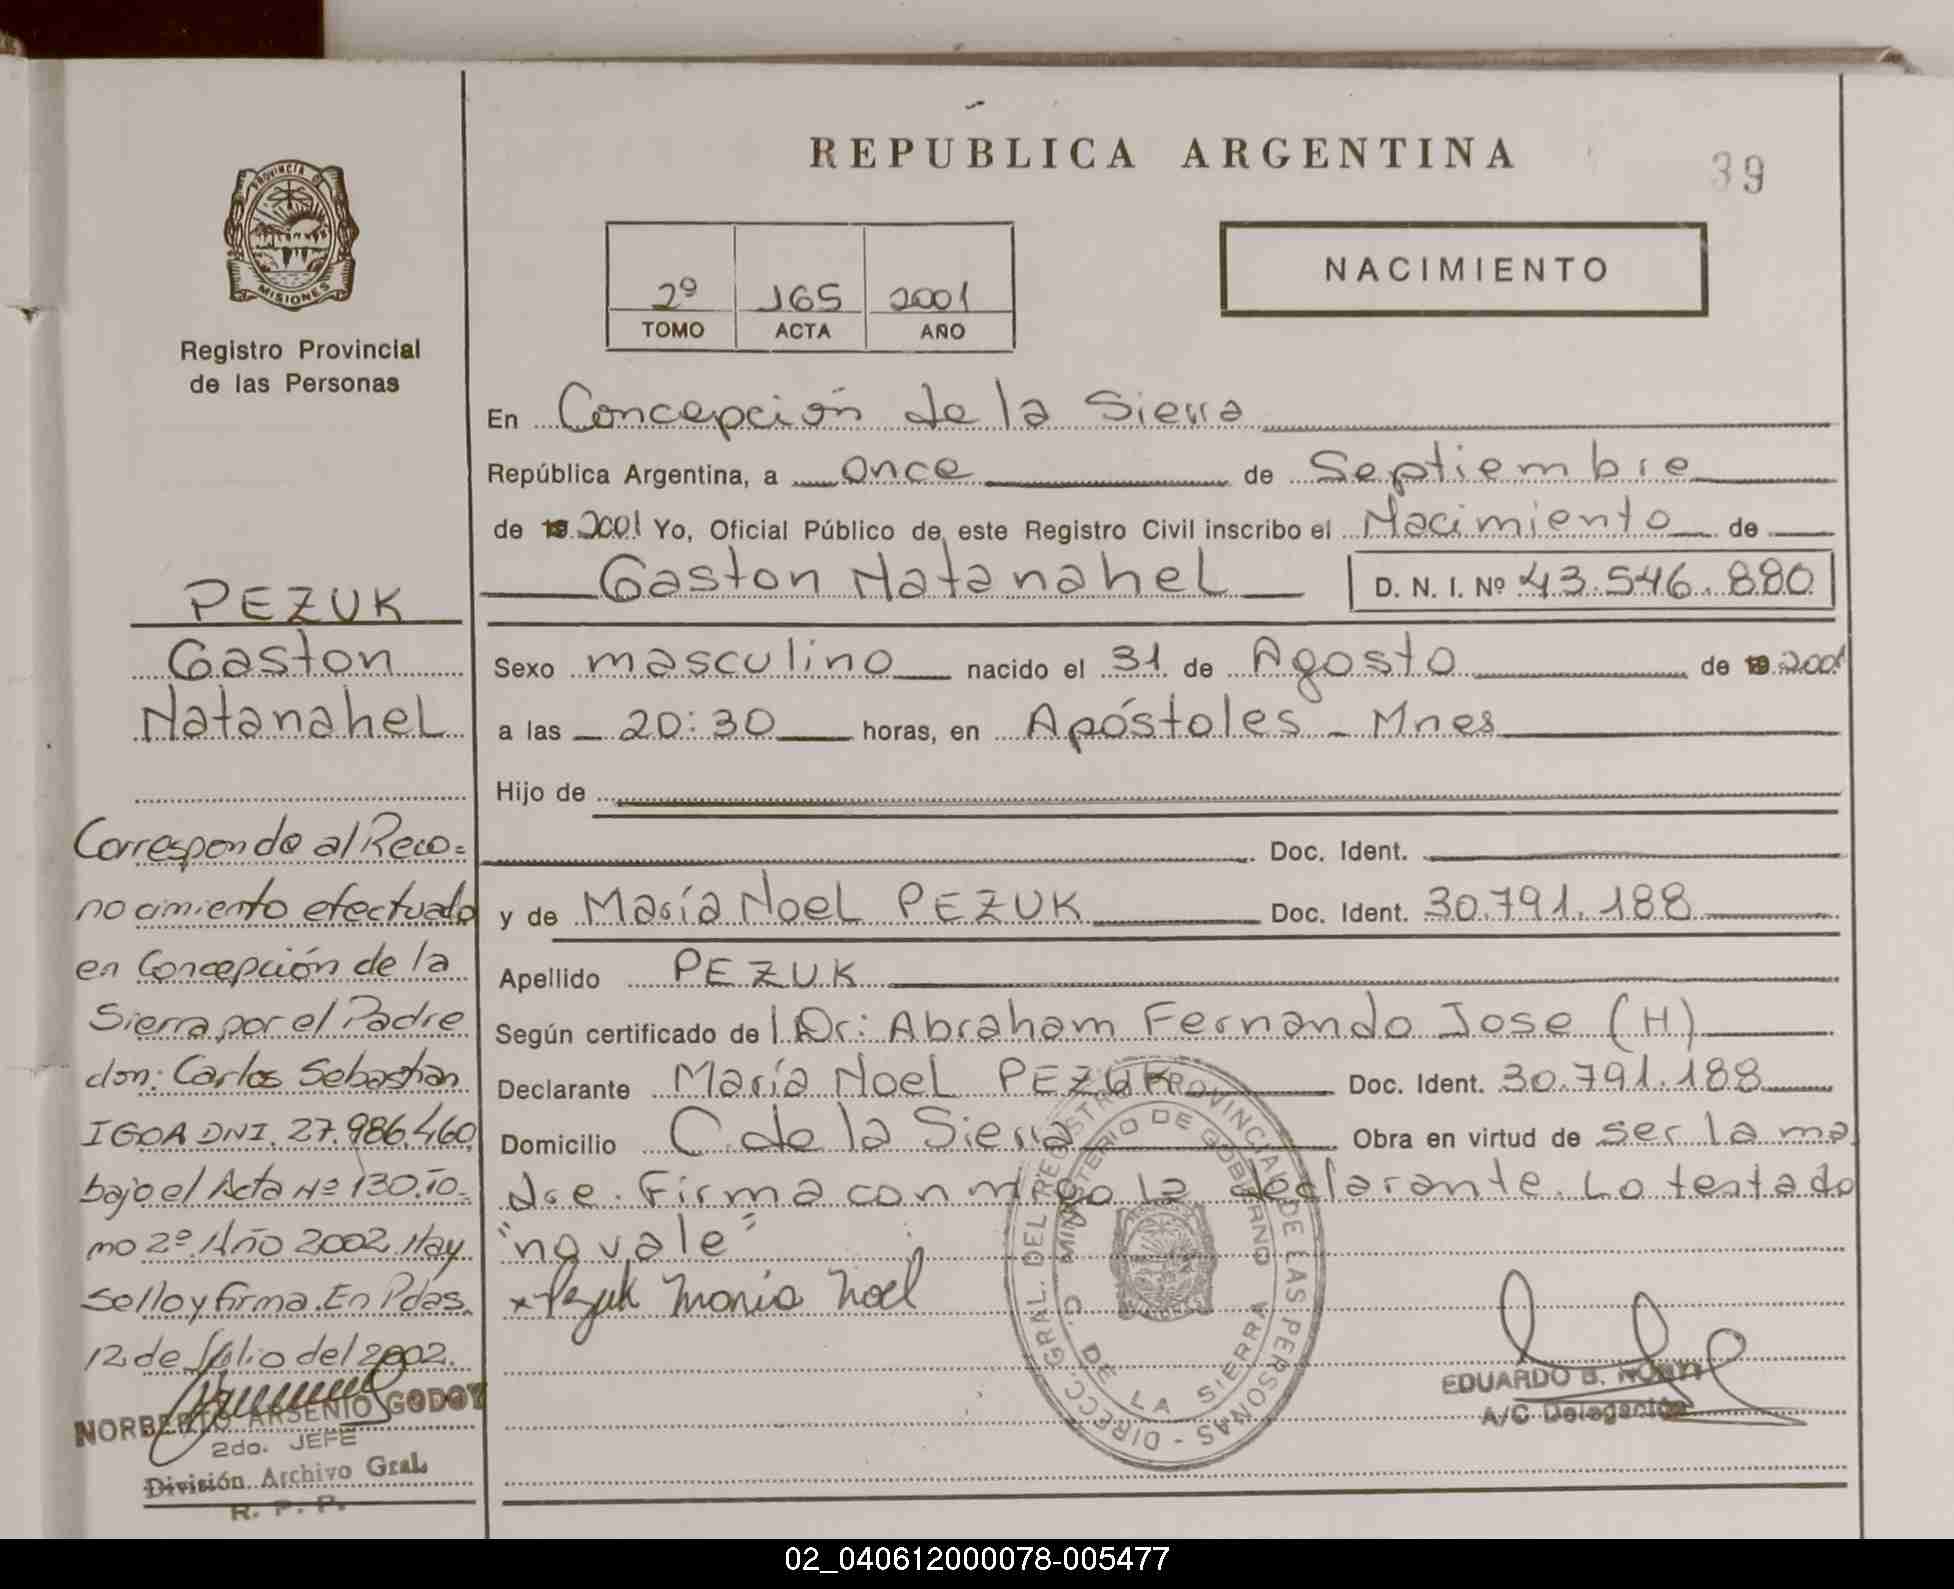 REPUBLICA ARGENTINA
39
PROVINCIA DE
MISIONES
Registro Provincial
de las Personas
2º 165 2001
TOMO ACTA AÑO
NACIMIENTO
En Concepción de la Sierra
República Argentina, a once de Septiembre
de 19 2001 Yo, Oficial Público de este Registro Civil inscribo el Nacimiento de
Gaston Natanahel D. N. I. Nº 43.546.880
Sexo masculino nacido el 31 de Agosto de 19 2001
a las 20:30 horas, en Apóstoles - Mnes
Hijo de
Doc. Ident.
y de María Noel PEZUK Doc. Ident. 30.791.188
Apellido PEZUK
Según certificado de l Dr: Abraham Fernando Jose (H)
Declarante María Noel PEZUK Doc. Ident. 30.791.188
Domicilio C. de la Sierra Obra en virtud de ser la ma
dre. Firma conmigo la declarante. Lo testado
"no vale"
x Pezuk María Noel
PEZUK
Gaston
Natanahel
Corresponde al Reco=
nocimiento efectuado
en Concepción de la
Sierra por el Padre
don: Carlos Sebastian
IGOA DNI. 27.986.460
bajo el Acta Nº 130.To-
mo 2º. Año 2002. Hay
Sello y firma. En Pdas.
12 de Julio del 2002.
NORBERTO ARSENIO GODOY
2do. JEFE
División Archivo Gral.
R. P. P.
DIRECC. GRAL. DEL REGISTRO PROVINCIAL DE LAS PERSONAS -
MINISTERIO DE GOBIERNO
C. DE LA SIERRA
EDUARDO B.
A/C Delegación
02_040612000078-005477